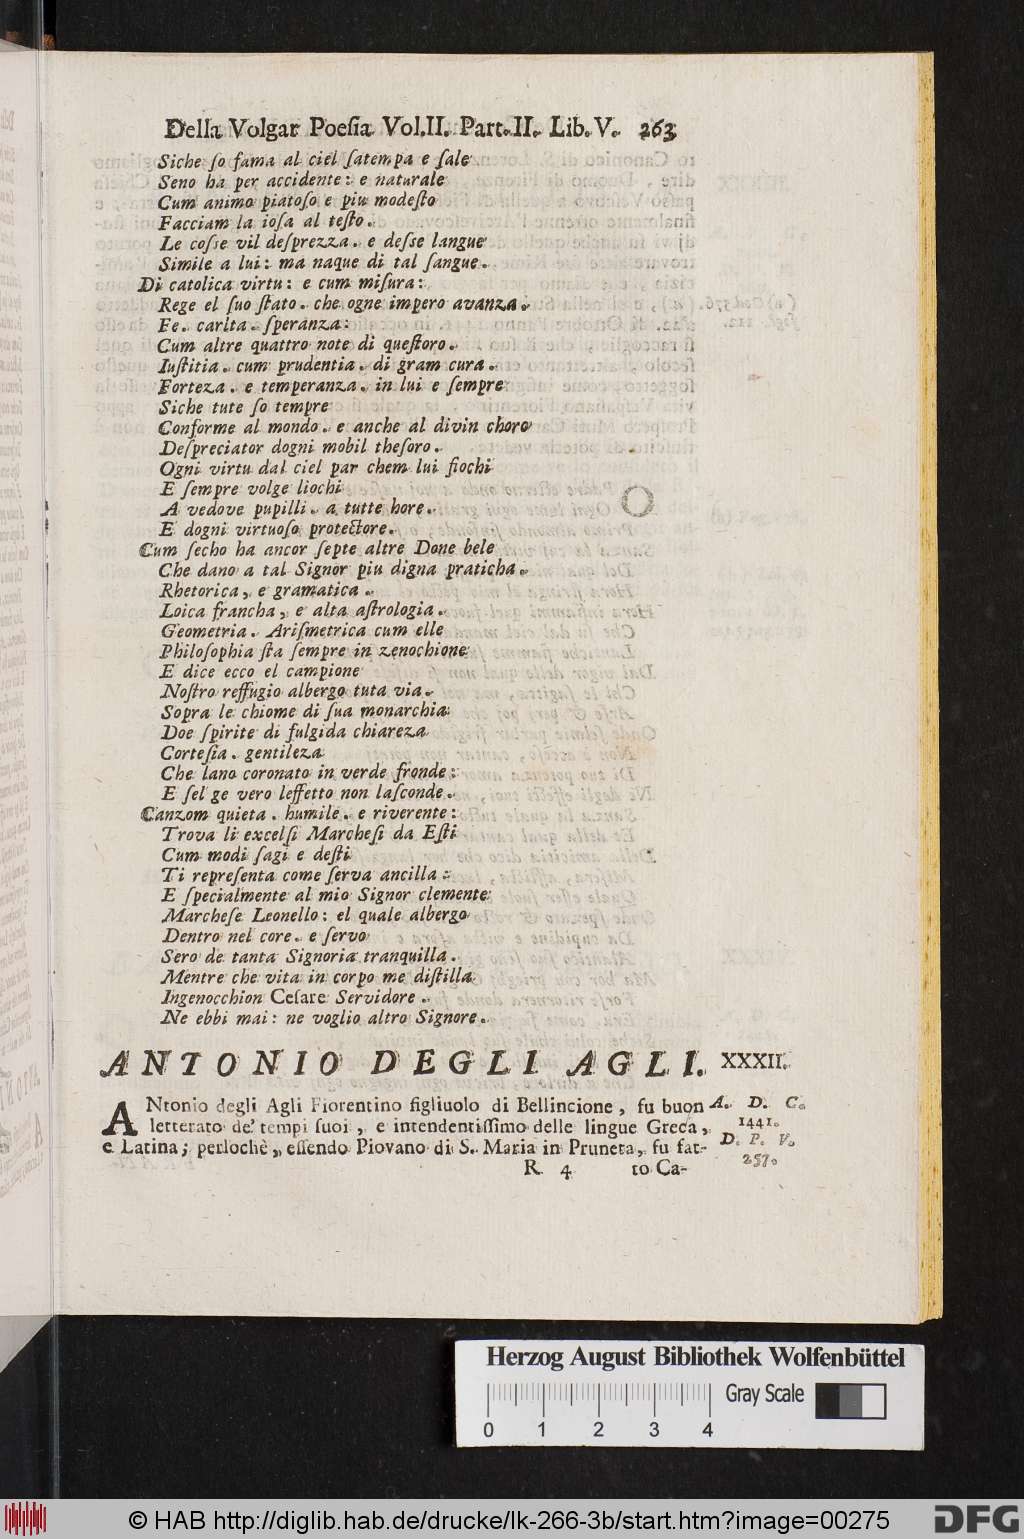 Della Volgar Poeſia Vol.II. Part.II. Lib.V. 263
Siche ſo fama al ciel ſatempa e ſale
Seno ha per accidente: e naturale
Cum animo piatoſo e piu modeſto
Facciam la ioſa al teſto.
Le coſse vil deſprezza. e deſse langue
Simile a lui: ma naque di tal ſangue.
Di catolica virtu: e cum miſura:
Rege el ſuo ſtato. che ogne impero avanza.
Fe. carita. ſperanza:
Cum altre quattro note di queſtoro.
Iuſtitia. cum prudentia. di gram cura.
Forteza. e temperanza. in lui e ſempre
Siche tute ſo tempre
Conforme al mondo. e anche al divin choro
Deſpreciator dogni mobil theſoro.
Ogni virtu dal ciel par chem lui fiochi
E ſempre volge liochi
A vedove pupilli. a tutte hore.
E dogni virtuoſo protectore.
Cum ſecho ha ancor ſepte altre Done bele
Che dano a tal Signor piu digna praticha.
Rhetorica, e gramatica.
Loica francha, e alta aſtrologia.
Geometria. Ariſmetrica cum elle
Philoſophia ſta ſempre in zenochione
E dice ecco el campione
Noſtro reffugio albergo tuta via.
Sopra le chiome di ſua monarchia
Doe ſpirite di fulgida chiareza
Corteſia. gentileza
Che lano coronato in verde fronde:
E ſel ge vero leffetto non laſconde.
Canzom quieta. humile. e riverente:
Trova li excelſi Marcheſi da Eſti
Cum modi ſagi e deſti
Ti repreſenta come ſerva ancilla:
E ſpecialmente al mio Signor clemente
Marcheſe Leonello: el quale albergo
Dentro nel core. e ſervo
Sero de tanta Signoria tranquilla.
Mentre che vita in corpo me diſtilla
Ingenocchion Ceſare Servidore.
Ne ebbi mai: ne voglio altro Signore.
ANTONIO DEGLI AGLI. XXXII.
ANtonio degli Agli Fiorentino figliuolo di Bellincione, fu buon A. D. C.
letterato de' tempi ſuoi, e intendentiſſimo delle lingue Greca, 1441.
e Latina; perlochè, eſſendo Piovano di S. Maria in Pruneta, fu fat- D. P. V.
257.
R 4 to Ca-
Herzog August Bibliothek Wolfenbüttel
Gray Scale
0 1 2 3 4
© HAB http://diglib.hab.de/drucke/lk-266-3b/start.htm?image=00275
DFG